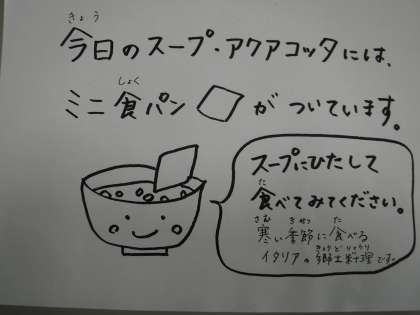 きょう
今日のスープ・アクアコッタには、
しょく
ミニ食パン がついています。
スープにひたして
た
食べてみてください。
さむ きせつ た
寒い季節に食べる
きょうどりょうり
イタリアの郷土料理です。